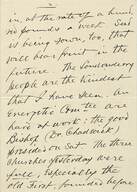 in at the rate of a hund.
six pounds a week. Seed
is being sown, too, that
will bear fruit in the
future. The Londonderry
people are the kindest
that I have seen. An
Energetic Comtee are
hard at work: the good
Bishop (Dr Chadwick)
presided on Sat. The three
Churches yesterday were
full, especially the
old First, founded before